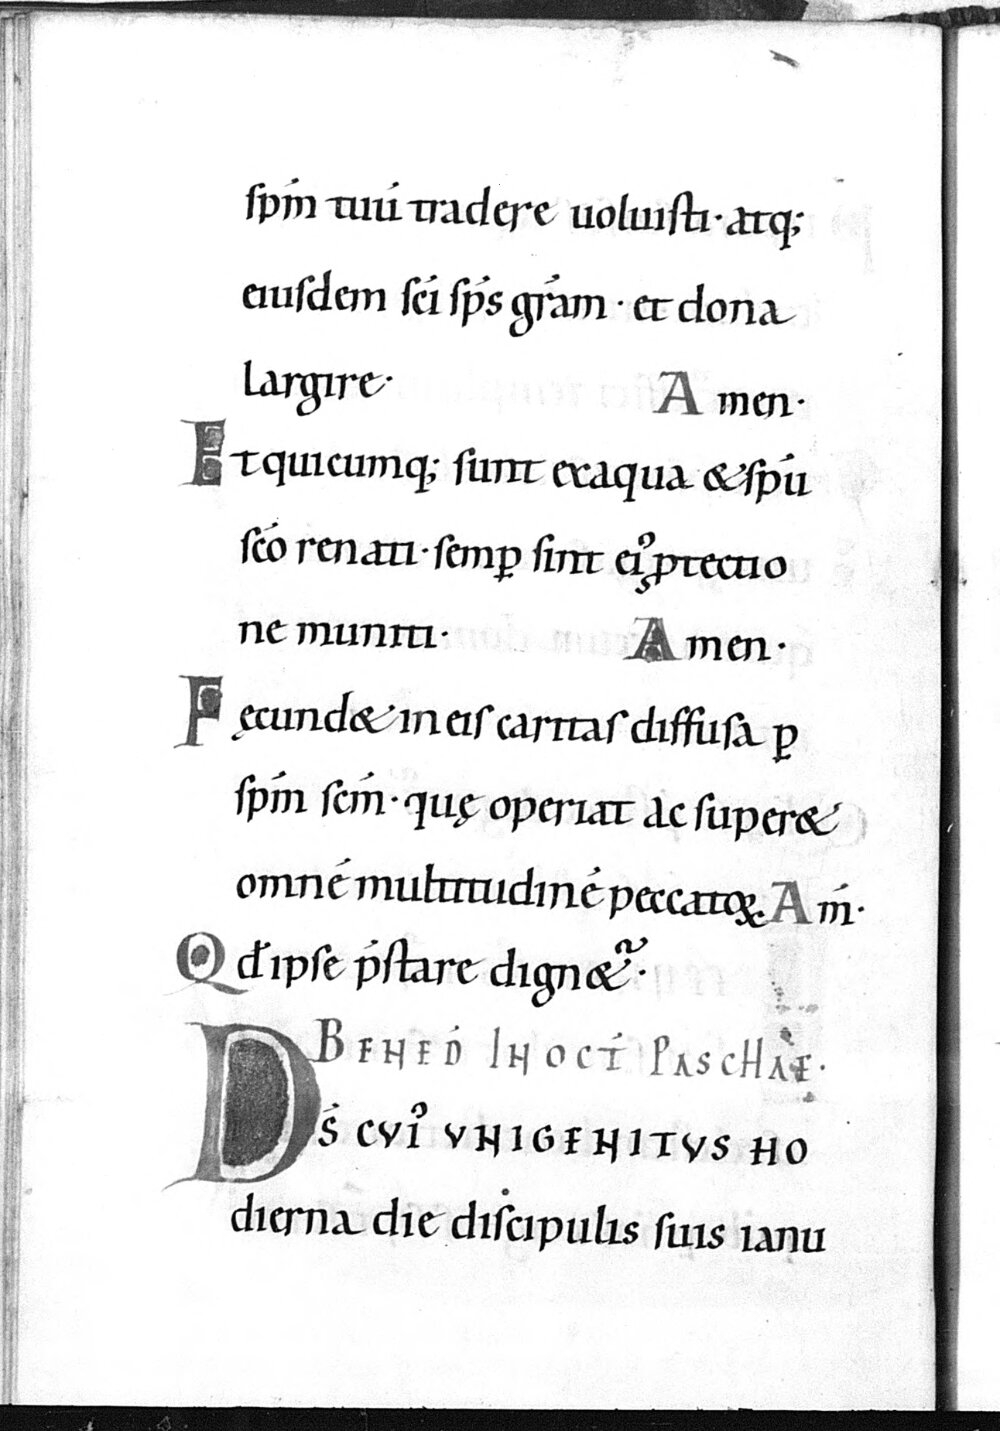 ſpm̄ tuū tradere uoluiſti· atq;
eiuſdem ſcī ſpс̄ gr̄am · et dona
largire· Amen·
Et quicumq; ſunt ex aqua & ſpū
ſcō renati· ſemꝑ ſint eiꝰ ꝓtectio
ne muniti· Amen·
Fęcund& in eiſ caritaſ diffuſa ꝑ
ſpm̄ ſcm̄· quę operiat ac ſuper&
omnē multitudinē peccatoꝝ Am̄·
Qđ ipſe p̄ſtare dign&ur̃·
BENED̄ IN OCT̄ PASCHAE·
DS̄ CVIꝰ VNIGENITVS HO
dierna die diſcipulis ſuis ianu